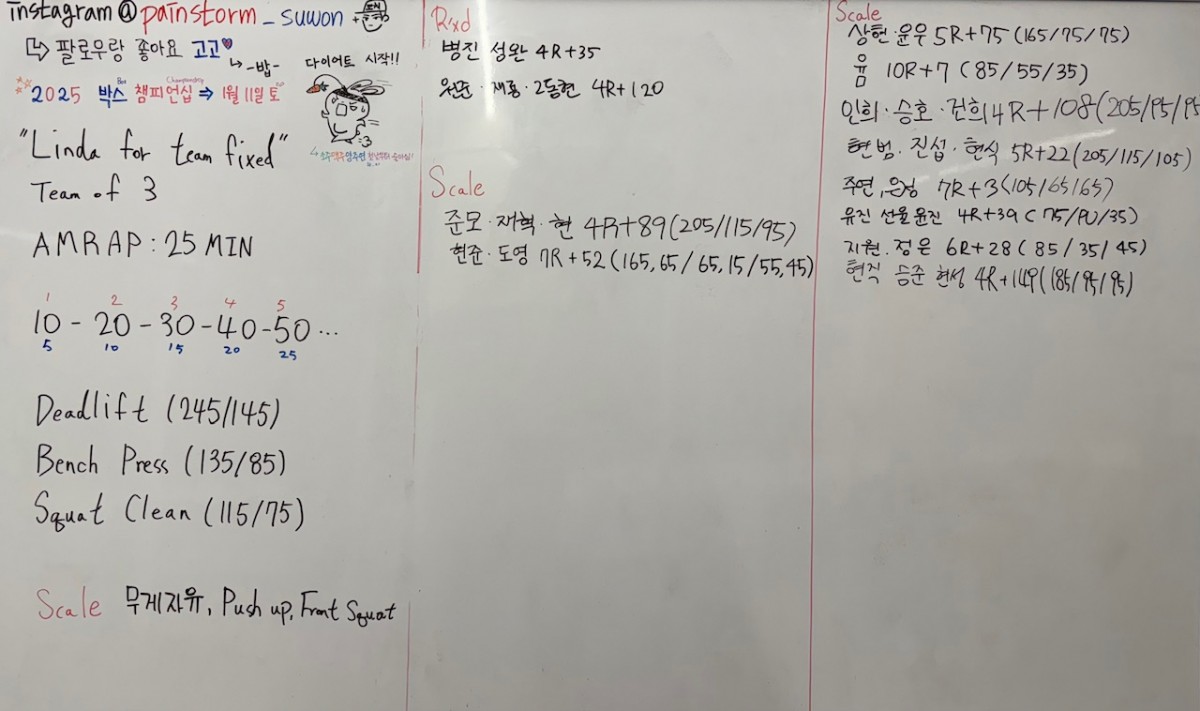 instagram @ painstorm_suwon +
↳ 팔로우랑 좋아요 고고
↳ -밥-
다이어트 시작!!
2025 박스 챔피언십 ⇒ 1월 11일 토
Box Championship
"Linda for team fixed"
Team of 3
AMRAP: 25 MIN
1 2 3 4 5
10 - 20 - 30 - 40 - 50 ...
5 10 15 20 25
Deadlift (245/145)
Bench Press (135/85)
Squat Clean (115/75)
Scale 무게자유, Push up, Front Squat
Rxd
병진 성완 4R+35
원준·재홍·2동현 4R+120
Scale
준모·재혁·현 4R+89(205/115/95)
현준·도영 7R+52(165,65/65,15/55,45)
Scale
상헌·윤우 5R+75(165/75/75)
윰 10R+7 (85/55/35)
인희·승호·건희 4R+108(205/95/95
현범·진섭·현식 5R+22(205/115/105)
주연, 은정 7R+3(105/65/65)
유진 선율 윤진 4R+39(75/PU/35)
지원.정은 6R+28(85/35/45)
현직 승준 현성 4R+149(185/95/95)